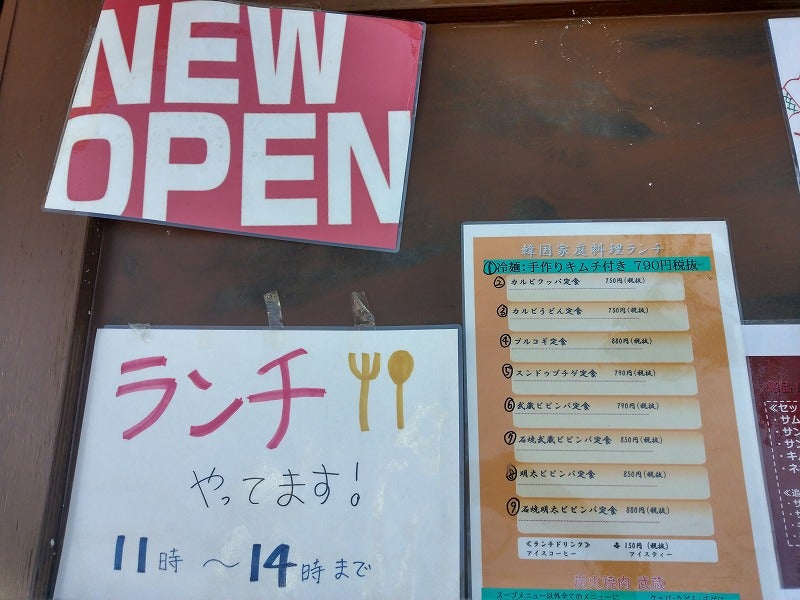 NEW
OPEN
ランチ
やってます!
11時 ~ 14時まで
韓国家庭料理ランチ
①冷麺:手作りキムチ付き 790円税抜
② カルビクッパ定食 750円(税抜)
③ カルビうどん定食 750円(税抜)
④ プルコギ定食 880円(税抜)
⑤ スンドゥブチゲ定食 790円(税抜)
⑥ 武蔵ビビンバ定食 790円(税抜)
⑦ 石焼武蔵ビビンバ定食 850円(税抜)
⑧ 明太ビビンバ定食 850円(税抜)
⑨ 石焼明太ビビンバ定食 880円(税抜)
≪ランチドリンク≫ 各 150円(税抜)
アイスコーヒー アイスティー
炭火焼肉 武蔵
スープメニュー以外全てのメニューに
≪セッ
・サム
・サン
・サン
・キム
・ネ
≪追